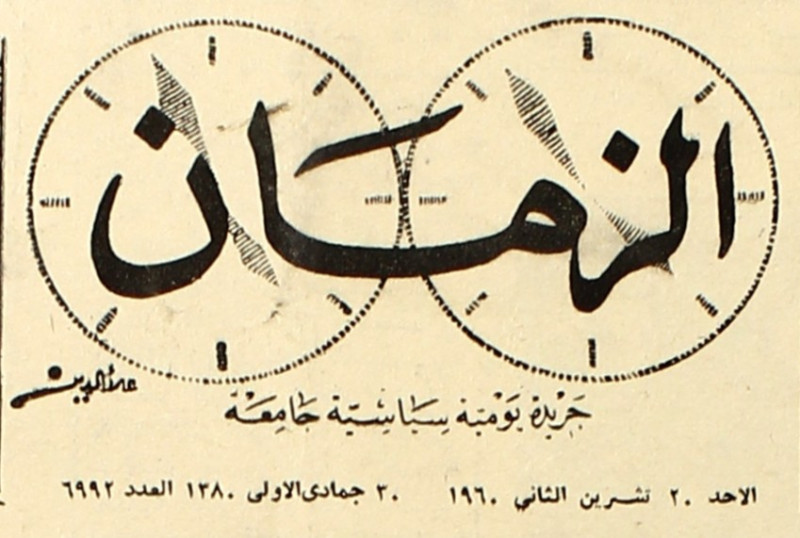 الزمان
علاء الدين
جَرْيدة يَوْميَة سِيَاسِيّة جَامِعَة
الاحد ٢٠ تشرين الثاني ١٩٦٠ ٣٠ جمادى الاولى ١٣٨٠ العدد ٦٩٩٢